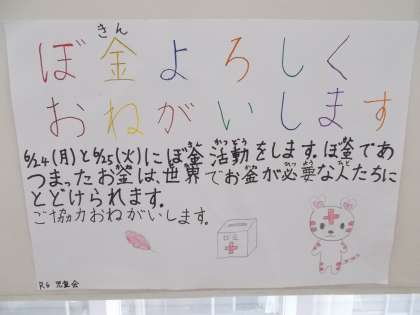 きん
ぼ金よろしく
おねがいします
きん かつどう きん
6/24(月)と6/25(火)にぼ釜活動をします。ぼ釜であ
つまったお釜は、世界でお釜が必要な人たちに
とどけられます。
ご協力おねがいします。
R6 児童会